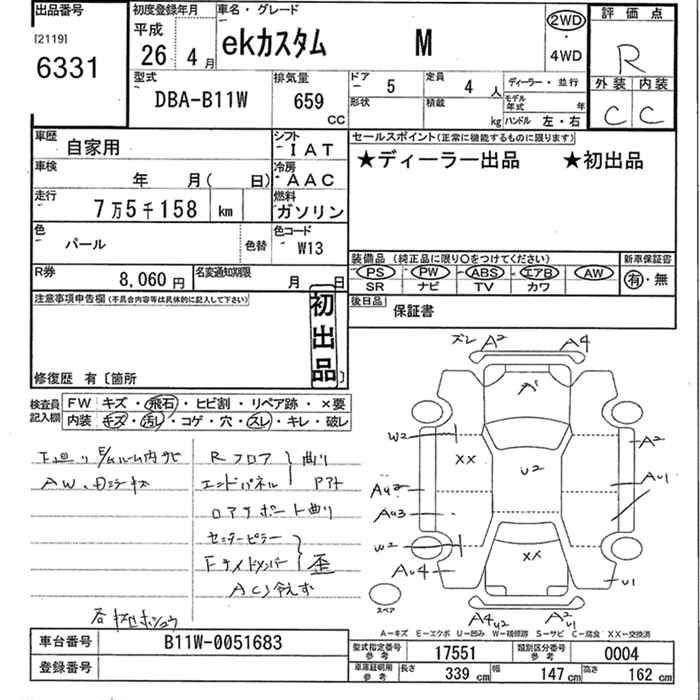 出品番号
[2119]
6331
初度登録年月
平成
26 年 4 月
車名・グレード
ekカスタム M
2WD
・
4WD
評価点
R
外装 内装
C C
型式
DBA-B11W
排気量
659
CC
ドア 5
形状
定員 4 人
積載 kg
ディーラー・並行
モデル年式 年
ハンドル 左・右
車歴
自家用
シフト
IAT
車検
年 月( 日)
冷房
AAC
走行
7万5千158 km
燃料
ガソリン
色
パール
色替
色コード
W13
R券
8,060円
名変通知期限
月 日
セールスポイント(正常に機能するものに限ります)
★ディーラー出品 ★初出品
装備品 (純正品に限り○をつけてください)
PS PW ABS エアB AW
SR ナビ TV カワ
新車保証書
有・無
後日品
保証書
注意事項申告欄(不具合内容等は具体的に記入して下さい)
初出品
修復歴 有〔箇所
検査員記入欄
FW キズ・飛石・ヒビ割・リペア跡・×要
内装 キズ・汚レ・コゲ・穴・スレ・キレ・破レ
下廻り E/ルーム内サビ
AW、
R フロア
エンドパネル
曲り
ロアサポート曲り
センターピラー
Fサイドメンバー
歪
AC冷えず
ズレ A2 A4
A1
W2
XX
U2
A2
AU2
AU1
AU3
W2
XX
AU4
U1
スペア
A4 U2
A2 U1
A-キズ E-エクボ U-凹み W-補修跡 S-サビ C-腐食 XX-交換済
車台番号
B11W-0051683
登録番号
型式指定番号
参考
17551
類別区分番号
参考
0004
車庫証明用
参考
長さ 339 cm
幅 147 cm
高さ 162 cm